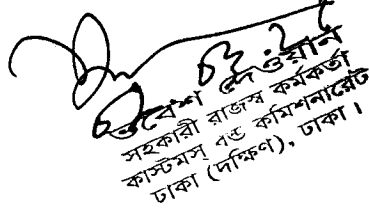 দেওয়ান
সহকারী রাজস্ব কর্মকর্তা
কাস্টমস্ বণ্ড কমিশনারেট
ঢাকা (দক্ষিণ), ঢাকা।